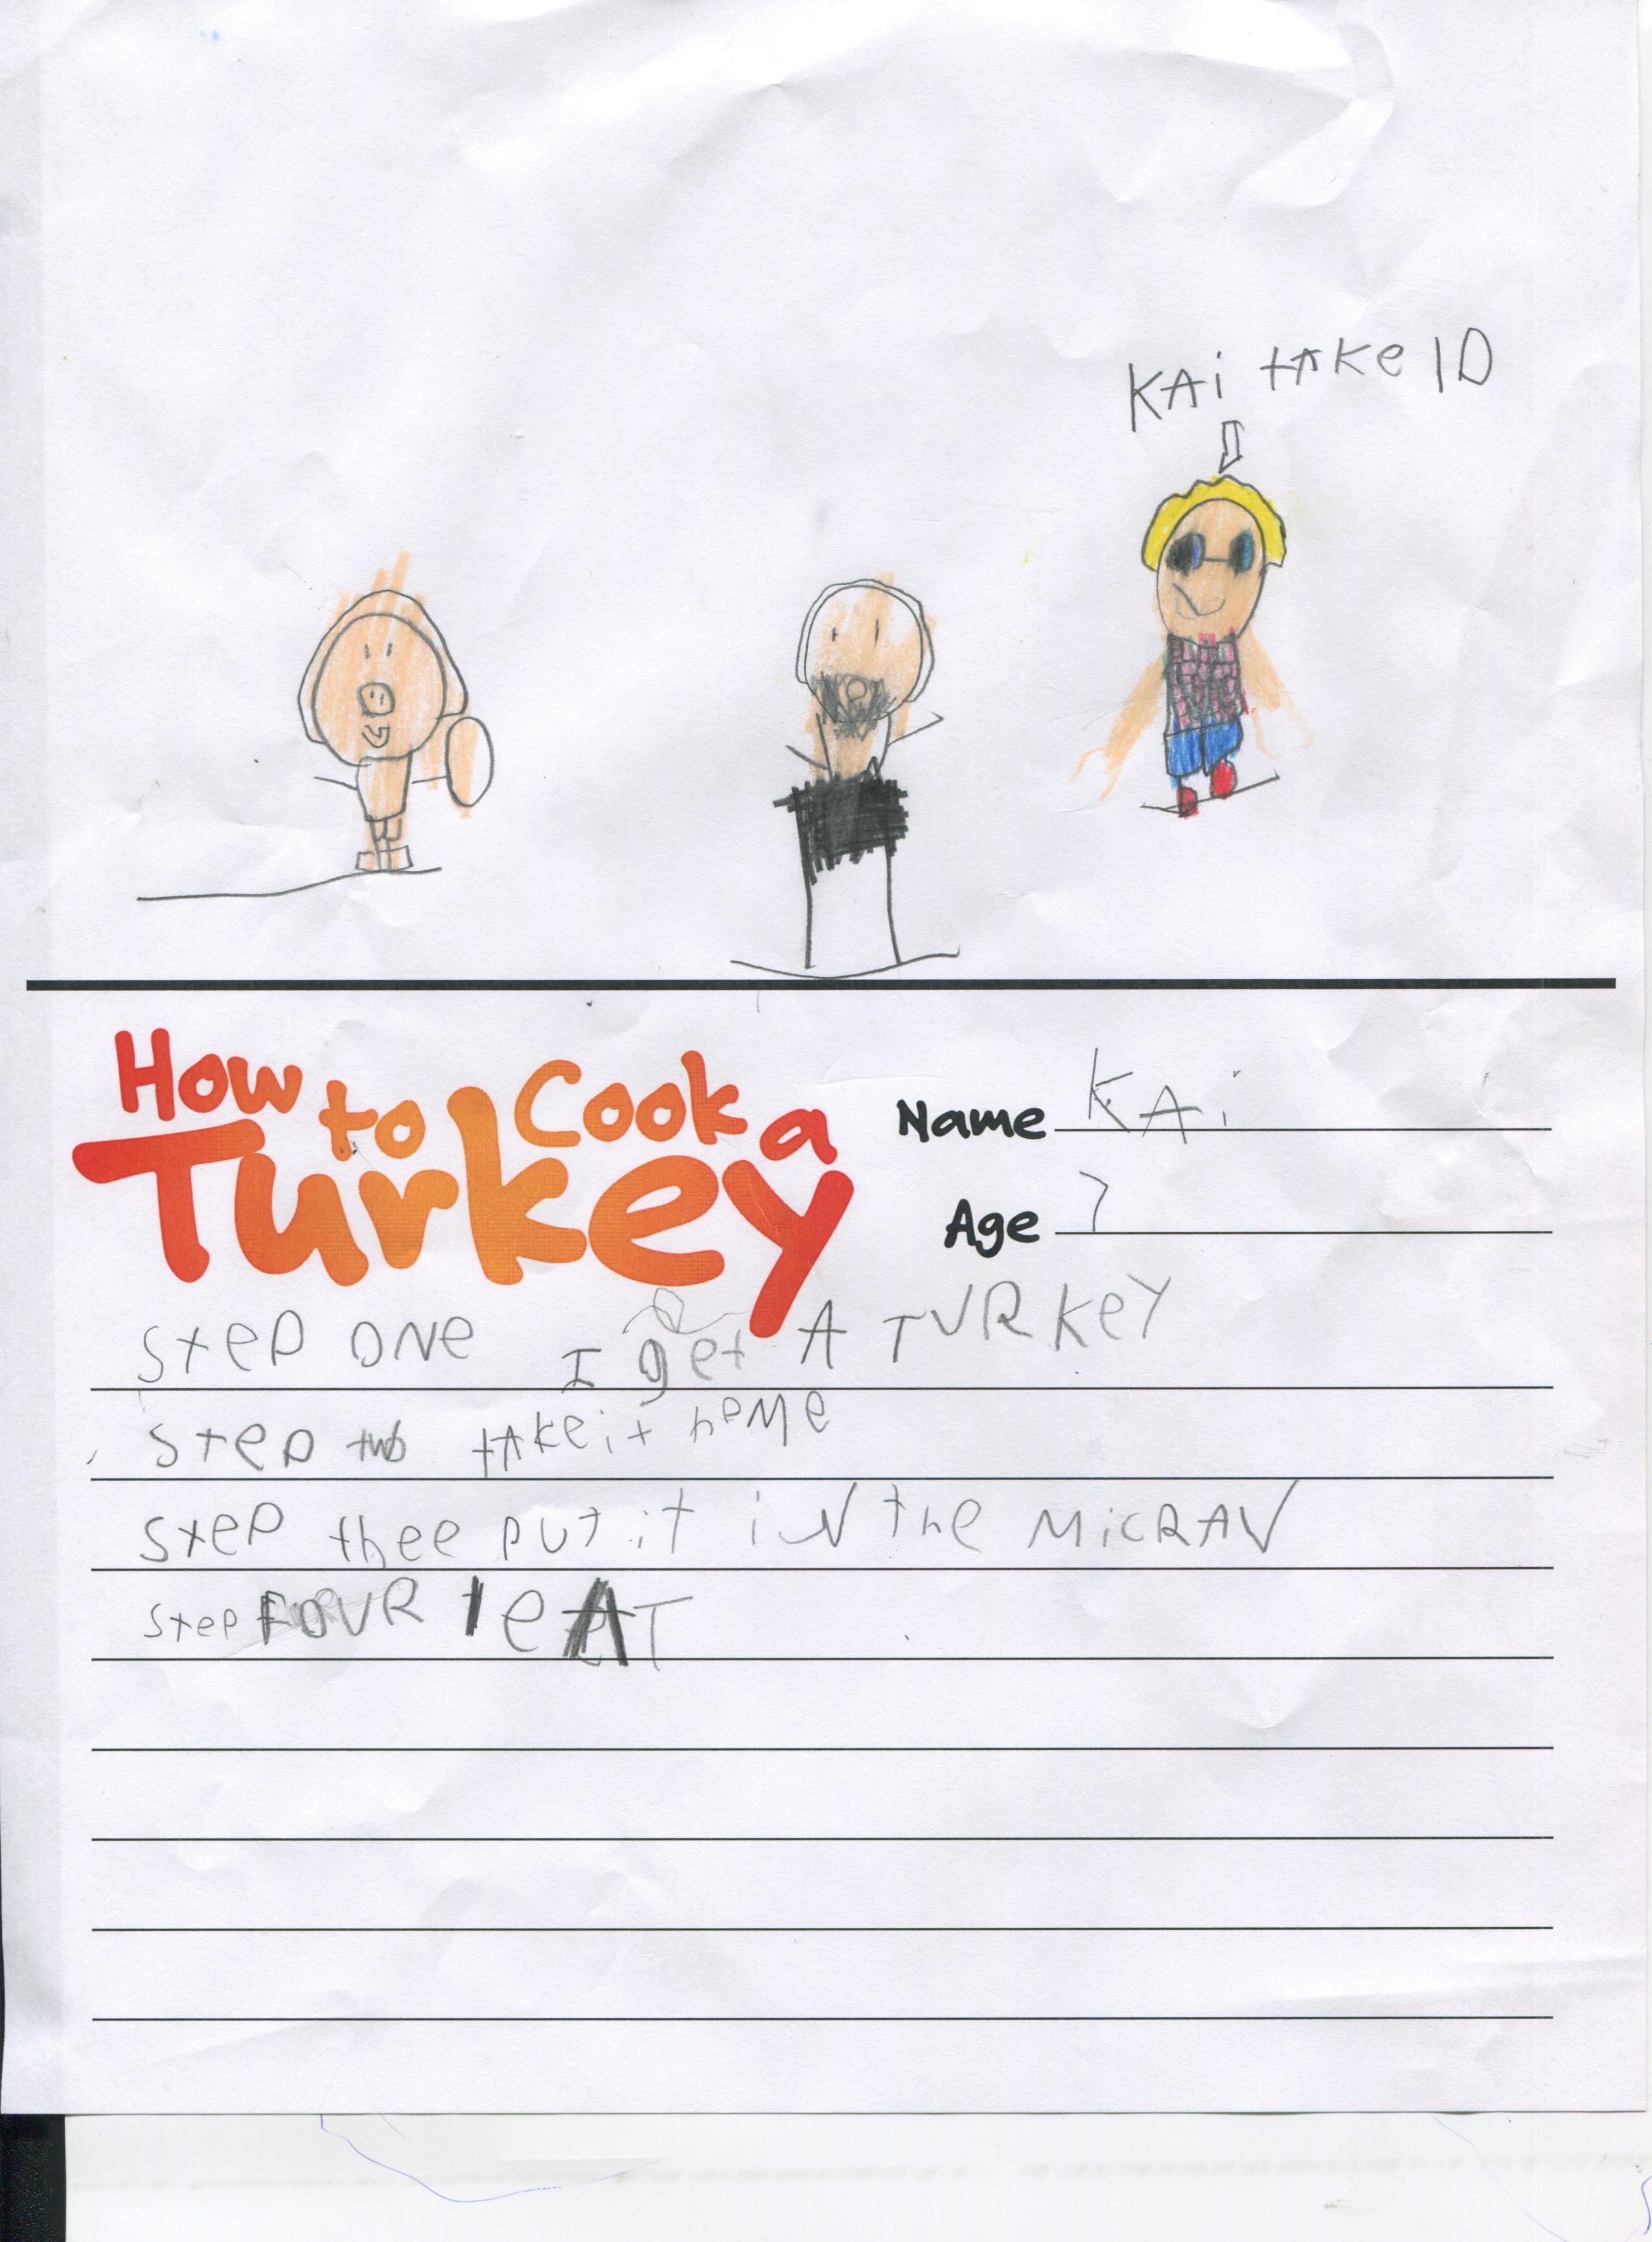 KAi tAKe ID
How to Cook a
Turkey
Name KAi
Age 7
SteP ONe I get A TURKeY
SteP two tAKe it hoMe
SteP thee PUt it iN the MiCRAV
SteP FOUR I eAT